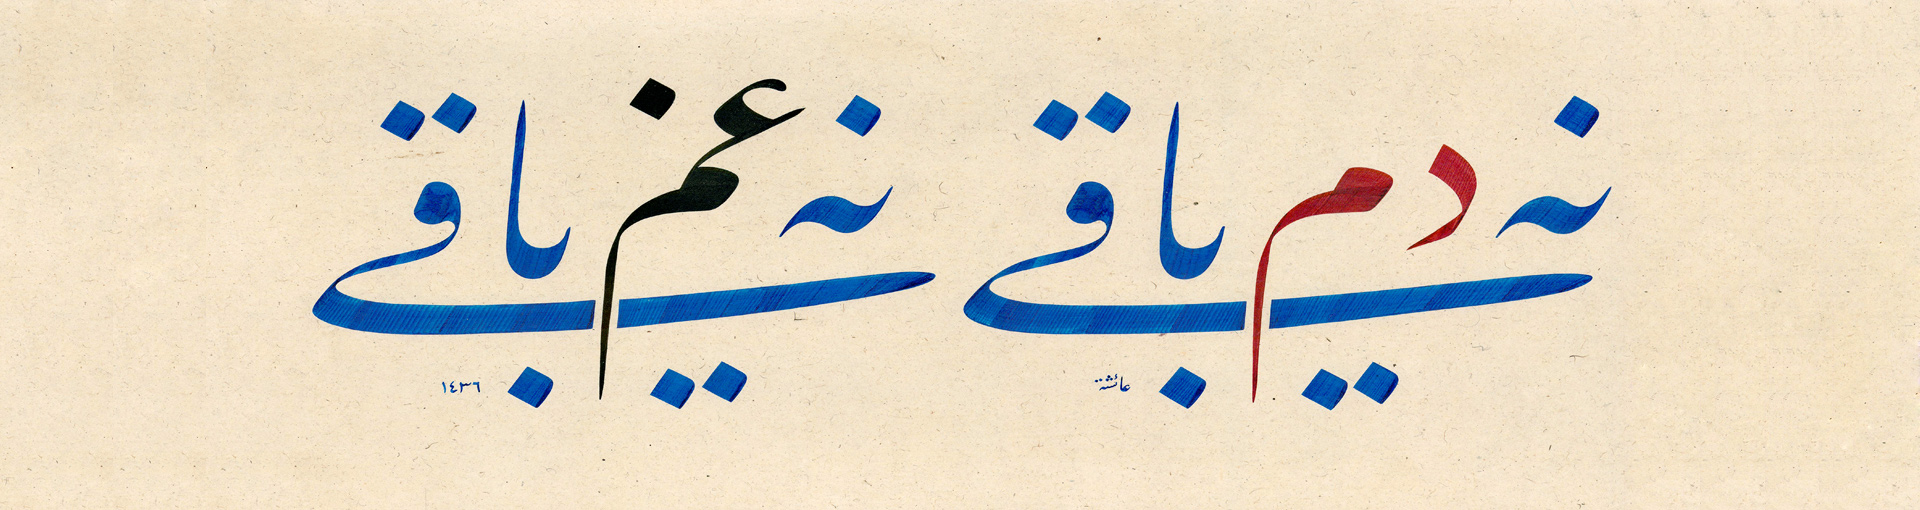 نه دم باقي نه غم باقي
عائشة ١٤٣٦